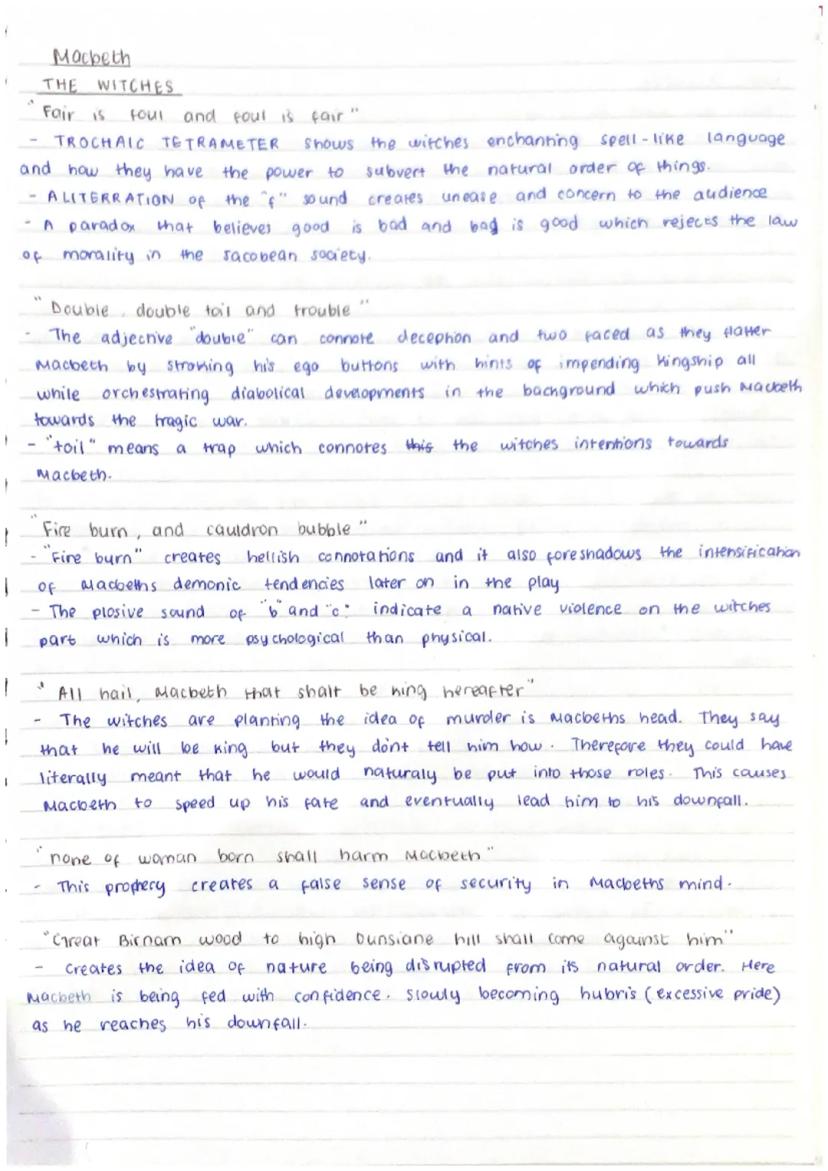 Macbeth
THE WITCHES
"Fair is foul and foul is fair"
- TROCHAIC TETRAMETER shows the witches enchanting spell-like language
and how they have the power to subvert the natural order of things.
- ALITERRATION of the "f" sound creates unease and concern to the audience
- A paradox that believes good is bad and bad is good which rejects the law
of morality in the Jacobean society.
"Double, double toil and trouble"
- The adjective "double" can connote deception and two faced as they flatter
Macbeth by stroking his ego buttons with hints of impending kingship all
while orchestrating diabolical developments in the background which push Macbeth
towards the tragic war.
- "toil" means a trap which connotes this the witches intentions towards
Macbeth.
"Fire burn, and cauldron bubble"
- "Fire burn" creates hellish connotations and it also foreshadows the intensification
of Macbeths demonic tendencies later on in the play
- The plosive sound of "b" and "c" indicate a native violence on the witches
part which is more psychological than physical.
"All hail, Macbeth that shalt be king hereafter"
- The witches are planting the idea of murder is Macbeths head. They say
that he will be king but they don't tell him how. Therefore they could have
literally meant that he would naturaly be put into those roles. This causes
Macbeth to speed up his fate and eventually lead him to his downfall.
"none of woman born shall harm Macbeth"
- This prophecy creates a false sense of security in Macbeths mind.
"Great Birnam wood to high Dunsiane hill shall come against him"
- Creates the idea of nature being disrupted from its natural order. Here
Macbeth is being fed with confidence. slowly becoming hubris (excessive pride)
as he reaches his downfall.